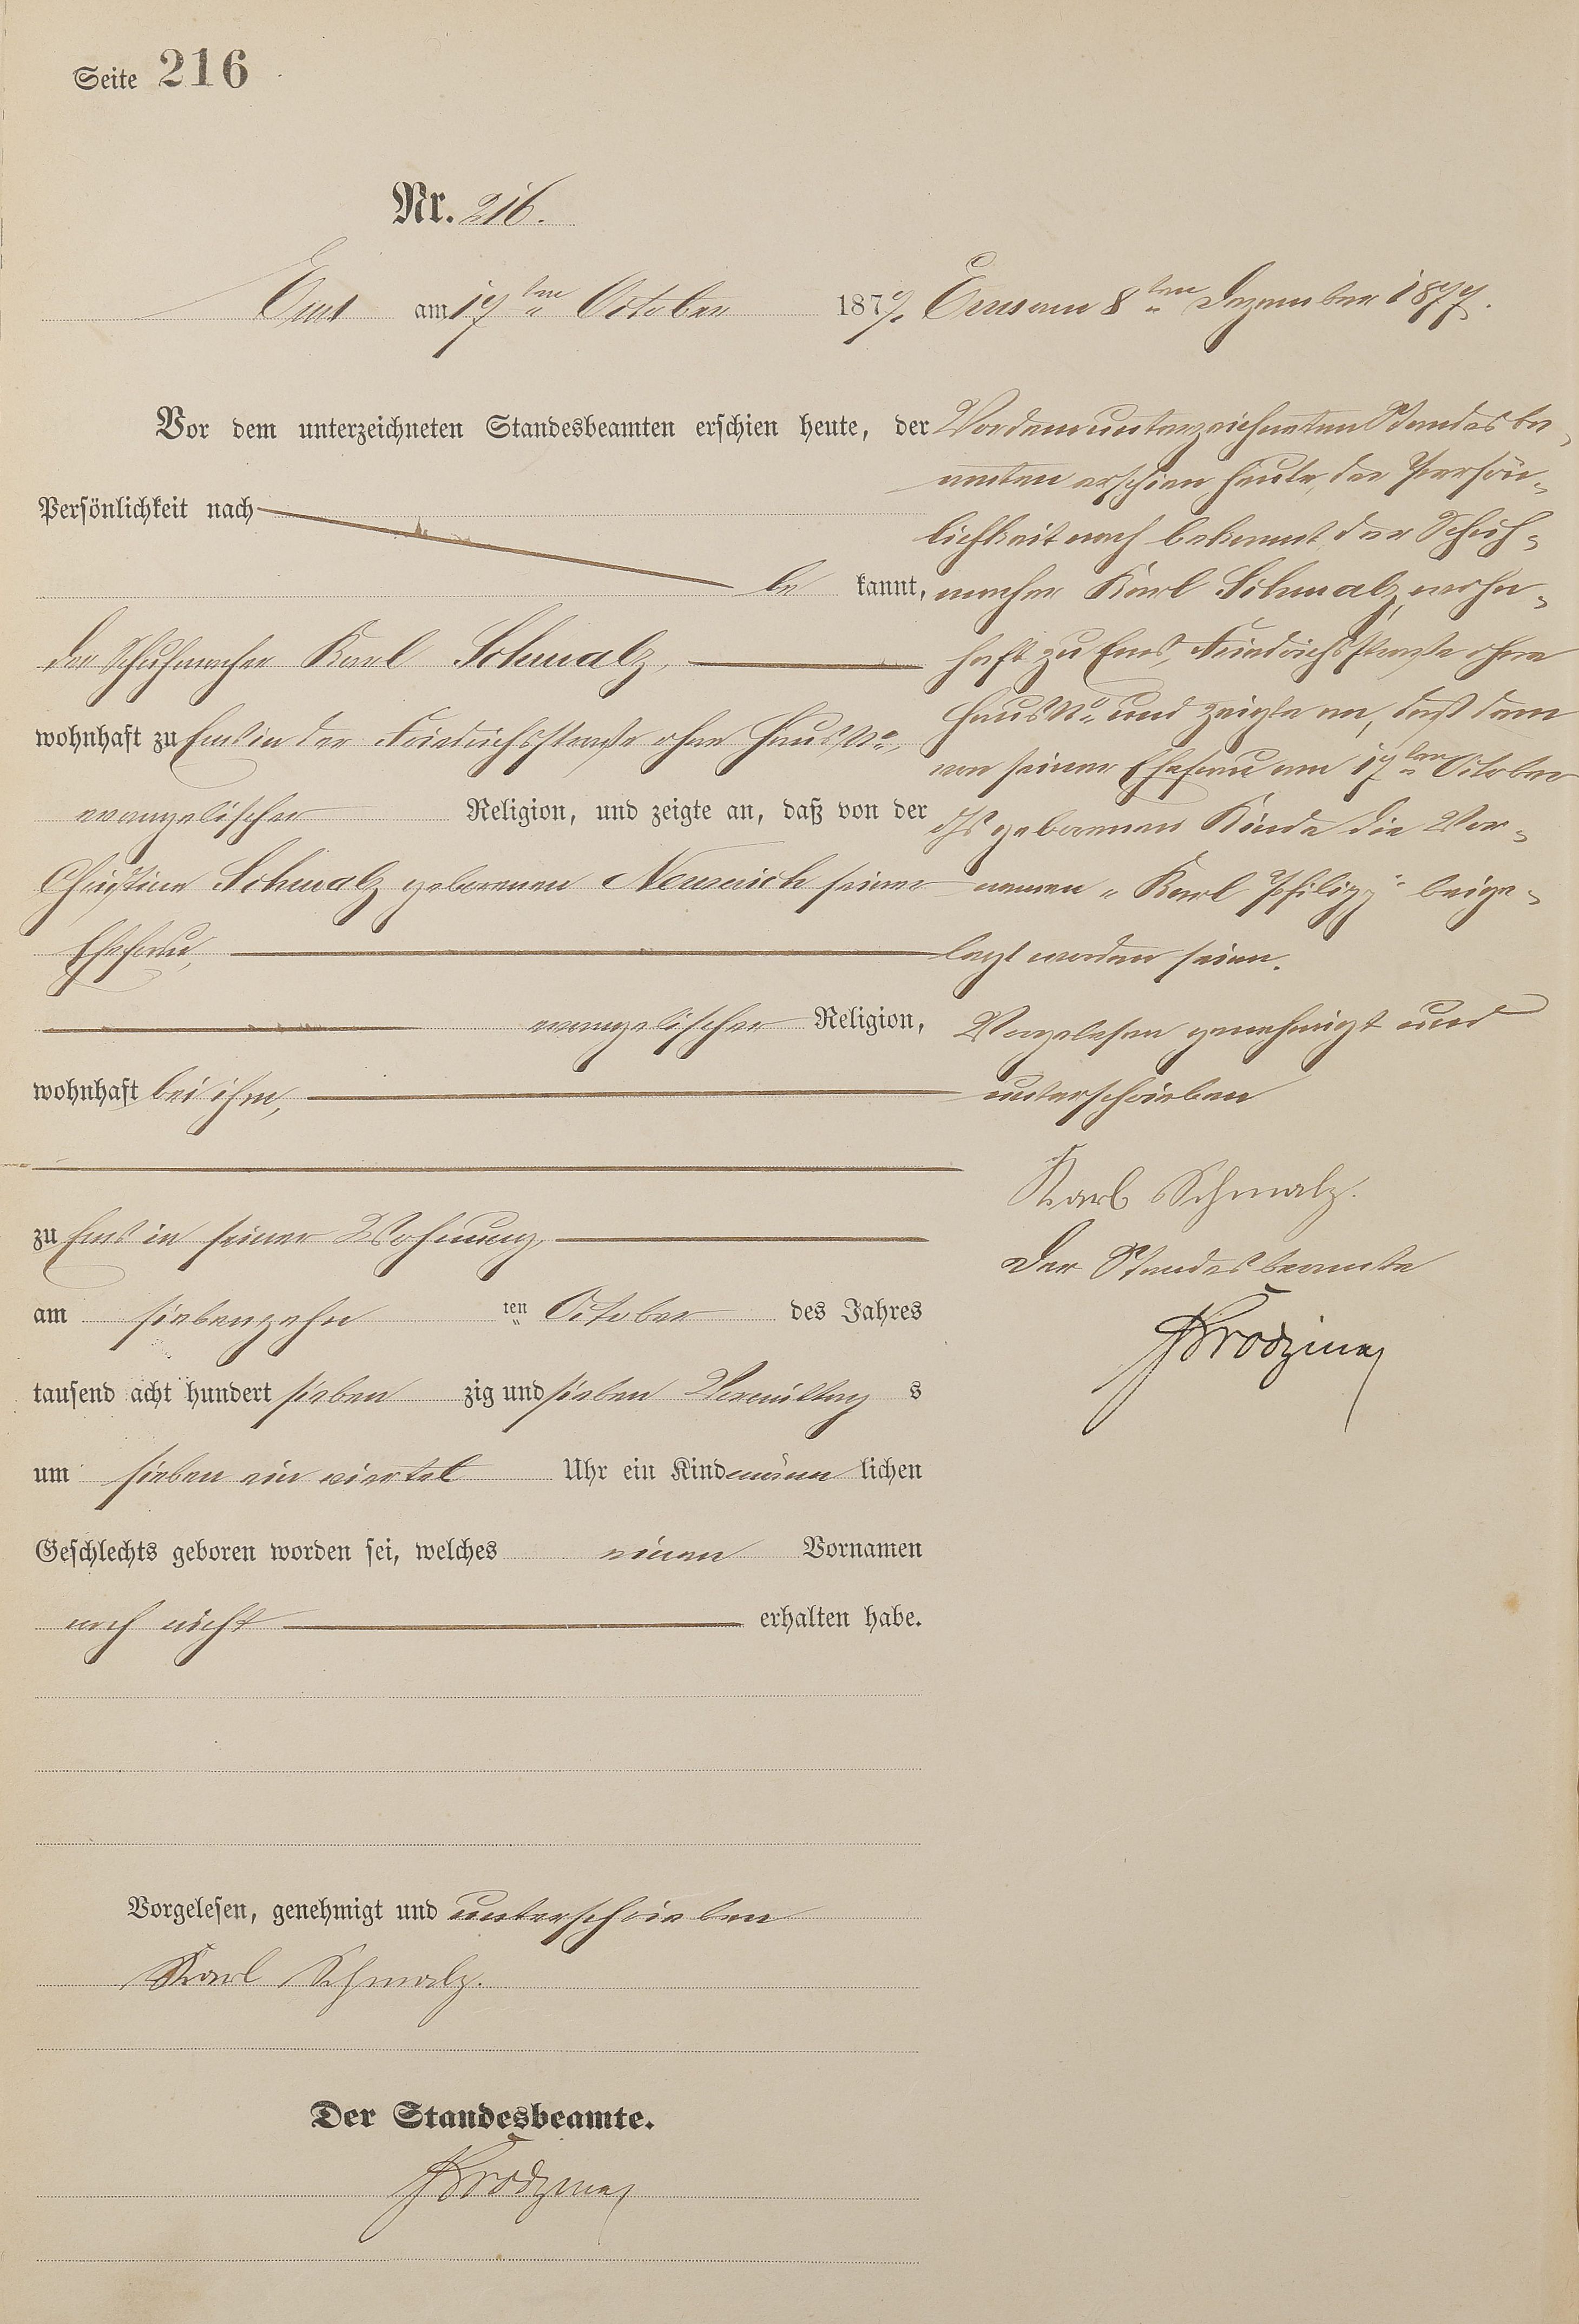 Seite 216
Nr. 216.
Ems am 17ten October 1877.
Vor dem unterzeichneten Standesbeamten erschien heute, der
Persönlichkeit nach
be kannt,
der Schuhmacher Karl Schmalz,
wohnhaft zu Ems in der Friedrichsstraße ohne Haus No.,
evangelischer Religion, und zeigte an, daß von der
Christine Schmalz geborenen seiner
Ehefrau,
evangelischer Religion,
wohnhaft bei ihm,
zu Ems in seiner Wohnung,
am siebenzehn ten October des Jahres
tausend acht hundert sieben zig und sieben Vormittag s
um sieben ein viertel Uhr ein Kind männ lichen
Geschlechts geboren worden sei, welches einen Vornamen
noch nicht erhalten habe.
Vorgelesen, genehmigt und unterschrieben
Karl Schmalz.
Der Standesbeamte.
Ems am 8ten Dezember 1877.
Vor dem unterzeichneten Standesbe-
amten erschien heute, der Persön-
lichkeit nach bekannt, der Schuh-
macher Karl Schmalz, wohn-
haft zu Ems, Friedrichsstraße ohne
Haus No. und zeigte an, daß dem
von seiner Ehefrau am 17ten October
ds. Js. geborenen Kinde die Vor-
namen "Karl Philipp" beige-
legt worden seien.
Vorgelesen genehmigt und
unterschrieben
Karl Schmalz.
Der Standesbeamte